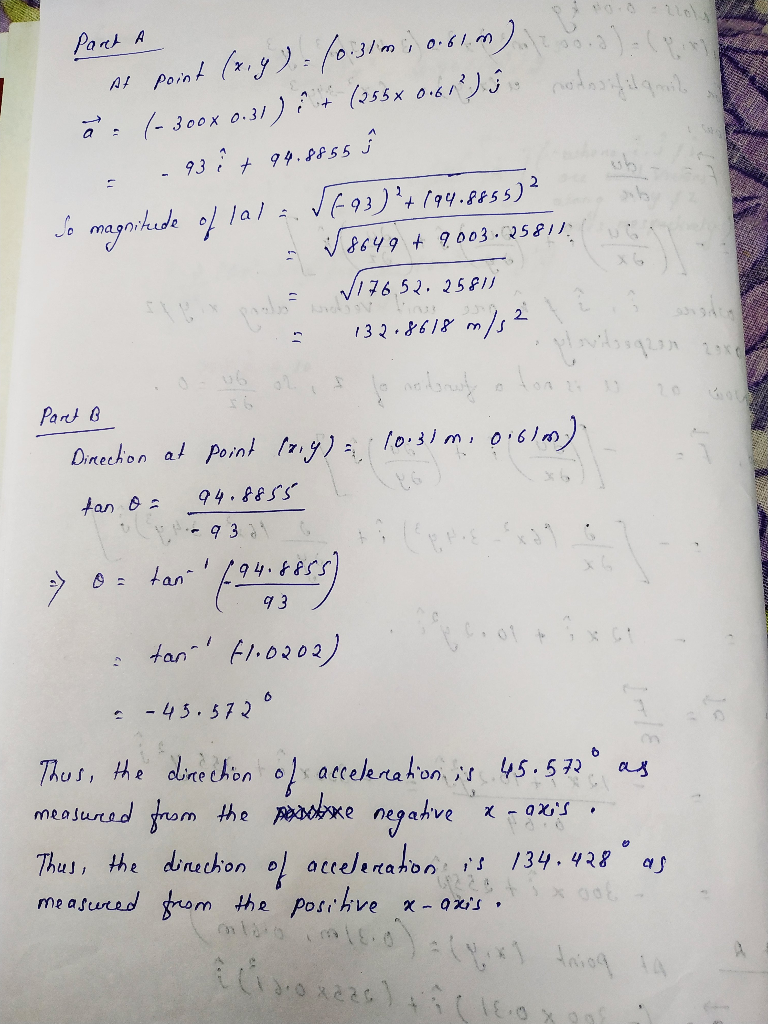 Part A
At point (x,y) = (0.31m, 0.61m)
a⃗ = (-300 x 0.31) î + (255 x 0.61²) ĵ
= - 93 î + 94.8855 ĵ
So magnitude of |a| = √(-93)² + (94.8855)²
= √8649 + 9003.25811
= √17652.25811
= 132.8618 m/s²
Part B
Direction at point (x,y) = (0.31m, 0.61m)
tan θ = 94.8855 / -93
=> θ = tan⁻¹ (-94.8855 / 93)
= tan⁻¹ (-1.0202)
= -45.572°
Thus, the direction of acceleration is 45.572° as
measured from the negative x-axis.
Thus, the direction of acceleration is 134.428° as
measured from the positive x-axis.